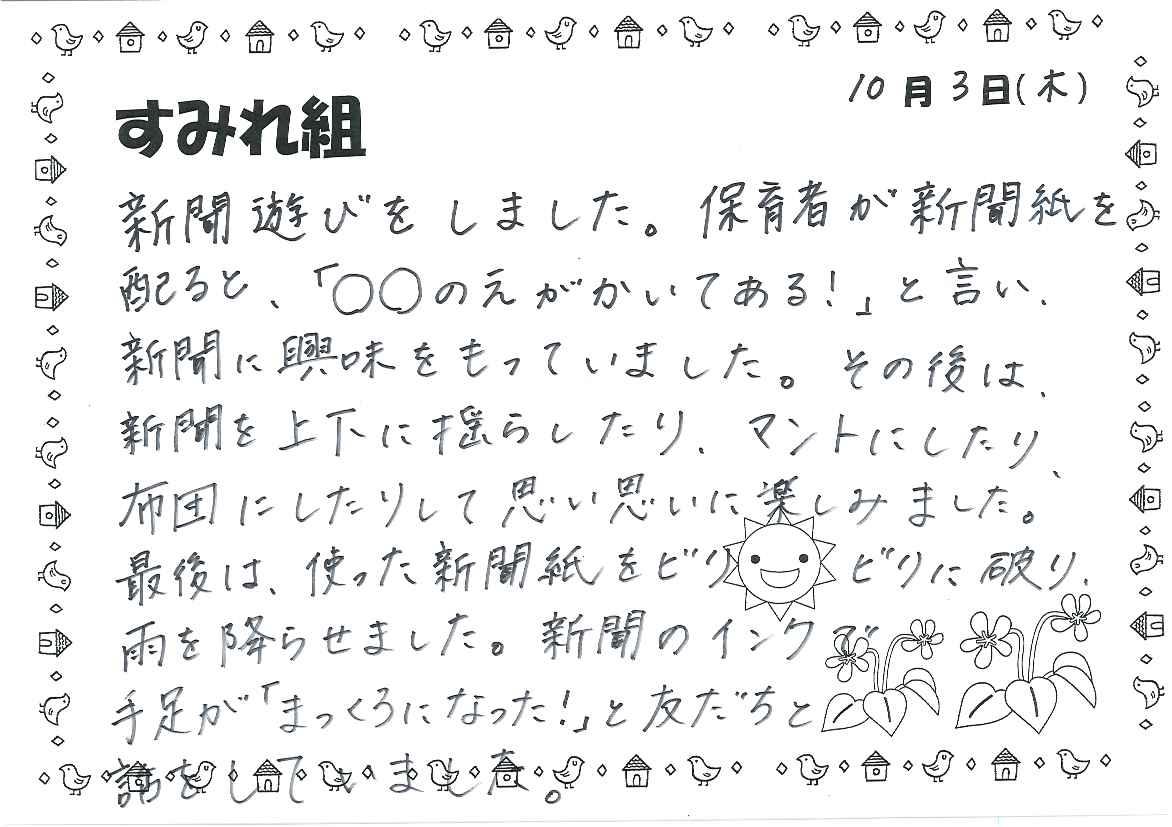 10月3日(木)
すみれ組
新聞遊びをしました。保育者が新聞紙を
配ると、「〇〇のえがかいてある!」と言い、
新聞に興味をもっていました。その後は、
新聞を上下に揺らしたり、マントにしたり、
布団にしたりして思い思いに楽しみました。
最後は、使った新聞紙をビリビリに破り、
雨を降らせました。新聞のインクで
手足が「まっくろになった!」と友だちと
話をしていました。